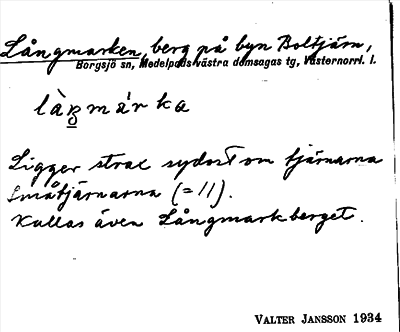 Långmarken, berg på byn Boltjärn,
Borgsjö sn, Medelpads västra domsagas tg, Västernorrl. l.
làŋmárka
Ligger strax sydost om tjärnarna
Småtjärnarna (=11).
Kallas även Långmarkberget.
VALTER JANSSON 1934